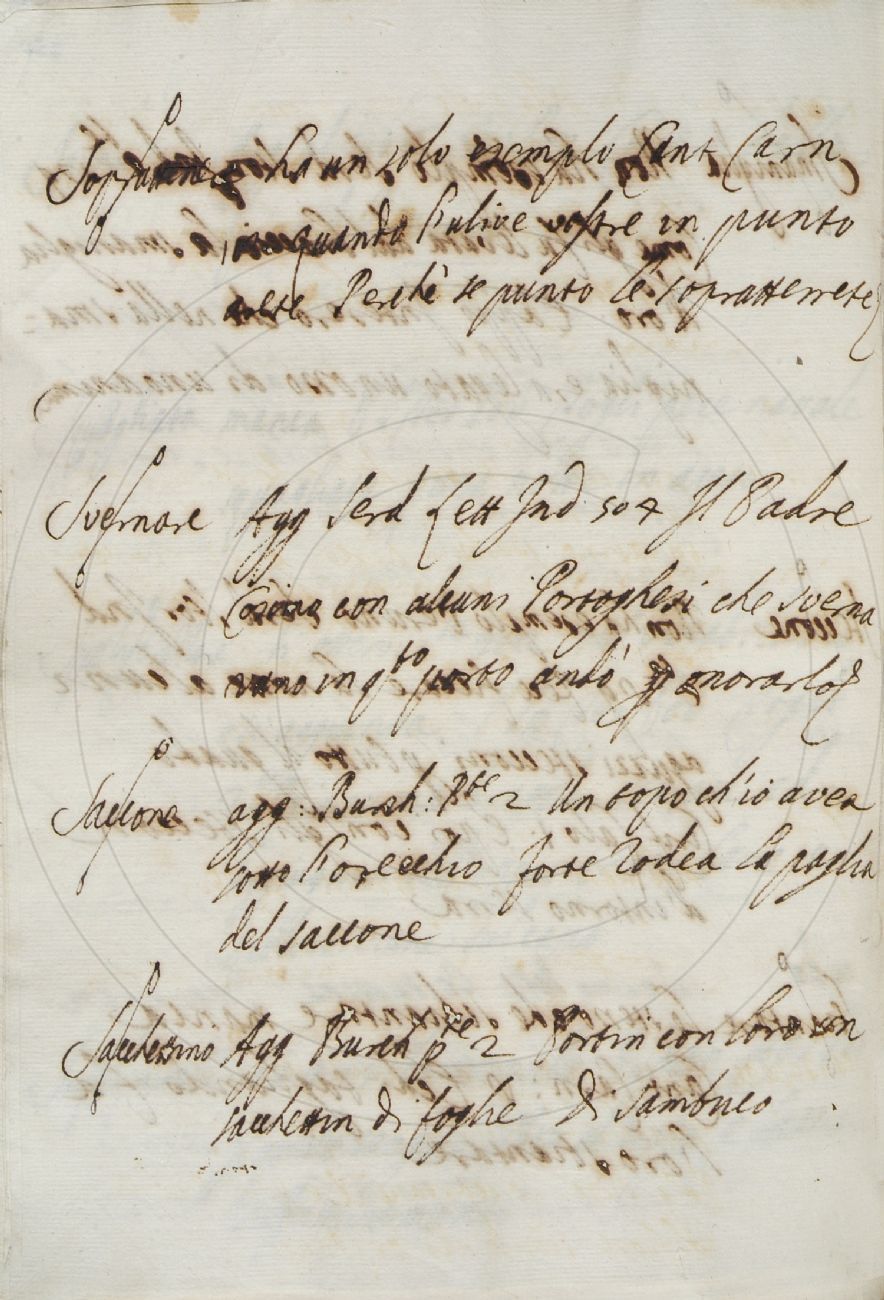 Soprattenere ha un solo esempio Cant Carn
quando l'ulive vostre in punto
arete Perchè se punto le sopratterrete
Svernare Agg Serd Lett Ind 504 Il Padre
Cosimo con alcuni Portoghesi che sverna
vano in qto porto andò ad onorarlo
Saccone agg: Burch: Pte 2 Un topo ch'io avea
sotto l'orecchio forte rodea la paglia
del saccone
Sacchettino Agg Burch pte 2 Portin con loro un
sacchettin di foglie di sambuco